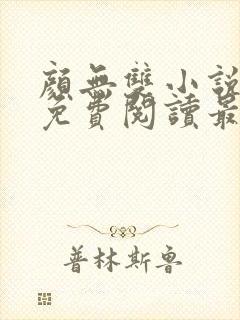 顏無雙小說
免費閱讀最
普林斯魯